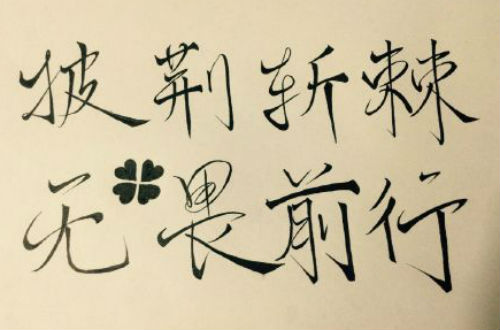 披荆斩棘
无畏前行